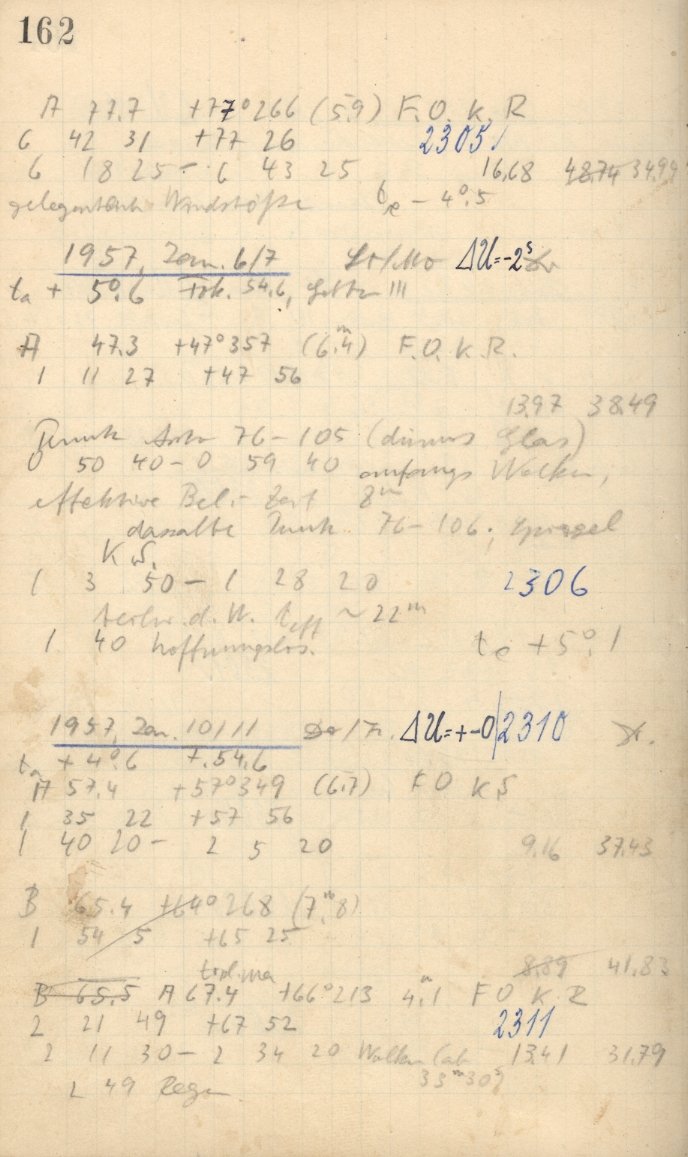 162
A 77.7 +77°266 (5.9) F. O. K. R
6 42 31 +77 26 2305
6 18 25 - 6 43 25 16.68 48.74 34.99
gelegentlich Windstöße te - 4°.5
1957, Jan. 6/7 So/Mo ΔU=-2s
ta + 5°.6 Fok. 54.6,
A 47.3 +47°357 (6m.4) F. O. K. R.
1 11 27 +47 56
13.97 38.49
76-105 (dünnes Glas)
0 50 40 - 0 59 40 anfangs Wolken,
effektive Bel.-Zeit 8m
dasselbe 76-106; Spiegel
K S.
1 3 50 - 1 28 20 2306
d. W. teff ~ 22m
1 40 hoffnungslos. te + 5°.1
1957, Jan. 10/11 Do/Fr. ΔU=+-0 2310
ta + 4°.6 F. 54.6
A 57.4 +57°349 (6.7) F O K S
1 35 22 +57 56
1 40 20 - 2 5 20 9.16 37.43
B 65.4 +64°268 (7m.8)
1 54 5 +65 25
8.89 41.83
B 65.5 A 67.4 +66°213 4m.1 F O K R
2 21 49 +67 52 2311
2 11 30 - 2 34 20 Wolken (ab 13.41 31.79
33m30s)
2 49 Regen